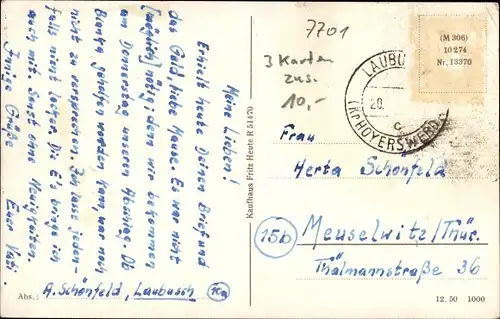 Meine Lieben!
Erhielt heute Deinen Brief und
das Geld, habe Hans. Es war nicht
nötig, denn wir bekommen
am Donnerstag unseren Abschlag. Ob
geholfen werden kann, war noch
nicht zu versprechen. Ich lasse jeden-
falls nicht locker. Die E's bringe ich
auch mit. Sonst ohne Neuigkeiten.
Innige Grüße Euer Vati.
Abs.: A. Schönfeld, Laubusch 10a
Kaufhaus Fritz Heute R 51470
7701
3 Karten
zus.
10,-
LAUBU
20.
c
(Kr HOYERSWERDA)
(M 306)
10 274
Nr. 13370
Frau
Herta Schönfeld
15b Meuselwitz/Thür.
Thälmannstraße 36
12. 50 1000